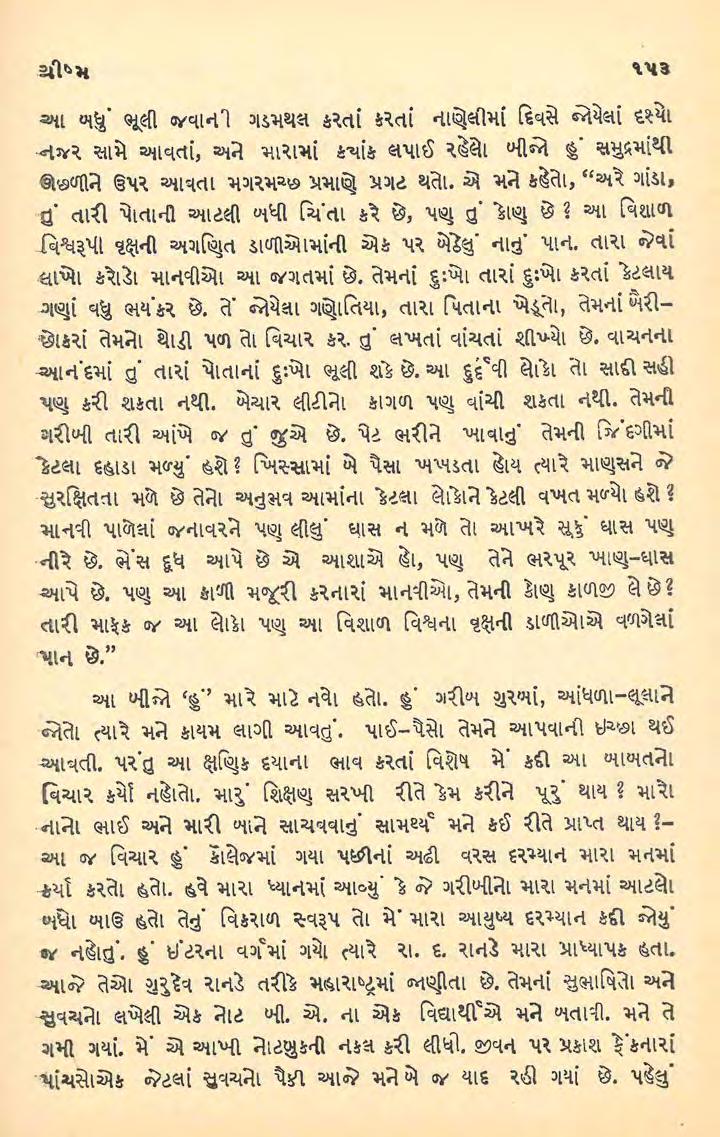 ગ્રીષ્મ ૧૫૩
આ બધું ભૂલી જવાની ગડમથલ કરતાં કરતાં નાણેલીમાં દિવસે જોયેલાં દૃશ્યો
નજર સામે આવતાં, અને મારામાં ક્યાંક લપાઈ રહેલો બીજો હું સમુદ્રમાંથી
ઊછળીને ઉપર આવતા મગરમચ્છ પ્રમાણે પ્રગટ થતો. એ મને કહેતો, “અરે ગાંડા,
તું તારી પોતાની આટલી બધી ચિંતા કરે છે, પણ તું કોણ છે ? આ વિશાળ
વિશ્વરૂપી વૃક્ષની અગણિત ડાળીઓમાંની એક પર બેઠેલું નાનું પાન. તારા જેવાં
લાખો કરોડો માનવીઓ આ જગતમાં છે. તેમનાં દુઃખો તારાં દુઃખો કરતાં કેટલાય
ગણાં વધુ ભયંકર છે. તેં જોયેલા ગણોતિયા, તારા પિતાના ખેડૂતો, તેમનાં બૈરી–
છોકરાં તેમનો થોડી પળ તો વિચાર કર. તું લખતાં વાંચતાં શીખ્યો છે. વાચનના
આનંદમાં તું તારાં પોતાનાં દુઃખો ભૂલી શકે છે. આ દુર્દૈવી લોકો તો સાદી સહી
પણ કરી શકતા નથી. બેચાર લીટીનો કાગળ પણ વાંચી શકતા નથી. તેમની
ગરીબી તારી આંખે જ તું જુએ છે. પેટ ભરીને ખાવાનું તેમની જિંદગીમાં
કેટલા દહાડા મળ્યું હશે ? ખિસ્સામાં બે પૈસા ખખડતા હોય ત્યારે માણસને જે
સુરક્ષિતતા મળે છે તેનો અનુભવ આમાંના કેટલા લોકોને કેટલી વખત મળ્યો હશે ?
માનવી પાળેલાં જનાવરને પણ લીલું ઘાસ ન મળે તો આખરે સૂકું ઘાસ પણ
નીરે છે. ભેંસ દૂધ આપે છે એ આશાએ હો, પણ તેને ભરપૂર ખાણ–ઘાસ
આપે છે. પણ આ કાળી મજૂરી કરનારાં માનવીઓ, તેમની કોણ કાળજી લે છે ?
તારી માફક જ આ લોકો પણ આ વિશાળ વિશ્વના વૃક્ષની ડાળીઓએ વળગેલાં
પાન છે.”
આ બીજો ‘હું’ મારે માટે નવો હતો. હું ગરીબ ગુરબાં, આંધળા–લૂલાને
જોતો ત્યારે મને કાયમ લાગી આવતું. પાઈ–પૈસો તેમને આપવાની ઇચ્છા થઈ
આવતી. પરંતુ આ ક્ષણિક દયાના ભાવ કરતાં વિશેષ મેં કદી આ બાબતનો
વિચાર કર્યો નહોતો. મારું શિક્ષણ સરખી રીતે કેમ કરીને પૂરું થાય ? મારો
નાનો ભાઈ અને મારી બાને સાચવવાનું સામર્થ્ય મને કઈ રીતે પ્રાપ્ત થાય ?–
આ જ વિચાર હું કૉલેજમાં ગયા પછીનાં અઢી વરસ દરમ્યાન મારા મનમાં
કર્યા કરતો હતો. હવે મારા ધ્યાનમાં આવ્યું કે જે ગરીબીનો મારા મનમાં આટલો
બધો બાઉ હતો તેનું વિકરાળ સ્વરૂપ તો મેં મારા આયુષ્ય દરમ્યાન કદી જોયું
જ નહોતું. હું ઇંટરના વર્ગમાં ગયો ત્યારે રા. દ. રાનડે મારા પ્રાધ્યાપક હતા.
આજે તેઓ ગુરુદેવ રાનડે તરીકે મહારાષ્ટ્રમાં જાણીતા છે. તેમનાં સુભાષિતો અને
સુવચનો લખેલી એક નોટ બી. એ. ના એક વિદ્યાર્થીએ મને બતાવી. મને તે
ગમી ગયાં. મેં એ આખી નોટબુકની નકલ કરી લીધી. જીવન પર પ્રકાશ ફેંકનારાં
પાંચસોએક જેટલાં સુવચનો પૈકી આજે મને બે જ યાદ રહી ગયાં છે. પહેલું